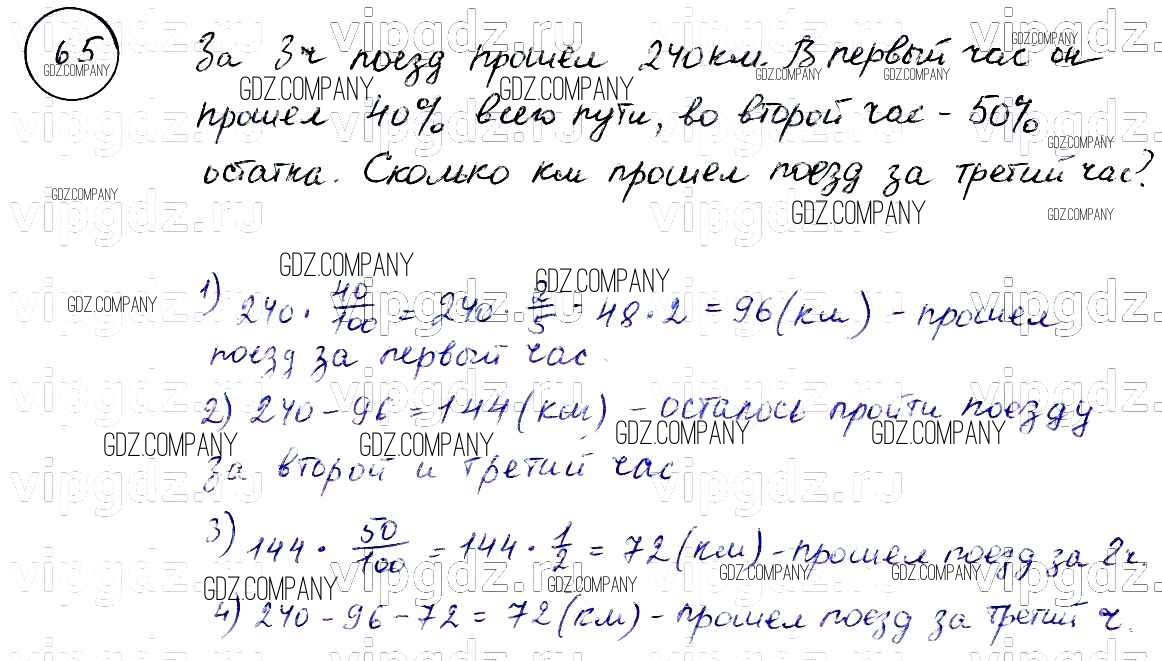 65
За 3ч поезд прошел 240 км. В первый час он
прошел 40% всего пути, во второй час - 50%
остатка. Сколько км прошел поезд за третий час?
1) 240 · 40/100 = 240 · 2/5 = 48 · 2 = 96 (км) - прошел
поезд за первый час.
2) 240 - 96 = 144 (км) - осталось пройти поезду
за второй и третий час
3) 144 · 50/100 = 144 · 1/2 = 72 (км) - прошел поезд за 2ч.
4) 240 - 96 - 72 = 72 (км) - прошел поезд за третий ч.
GDZ.COMPANY
vipgdz.ru